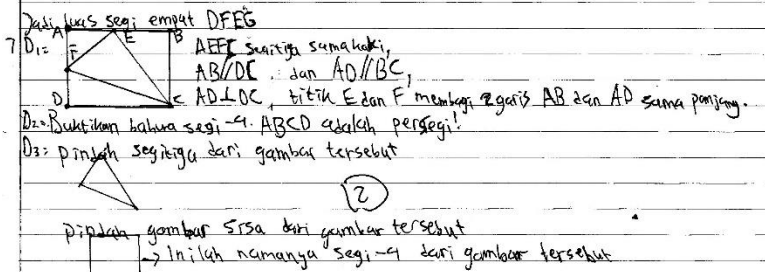 Jadi, luas segi empat DFEG
7 D1= A E B F D C ΔEFC segitiga samakaki,
AB//DC dan AD//BC,
AD⊥DC, titik E dan F membagi 2 garis AB dan AD sama panjang.
D2= Buktikan bahwa segi-4 ABCD adalah persegi!
D3= pindah segitiga dari gambar tersebut
2
pindah gambar sisa dari gambar tersebut
→ Inilah namanya segi-4 dari gambar tersebut